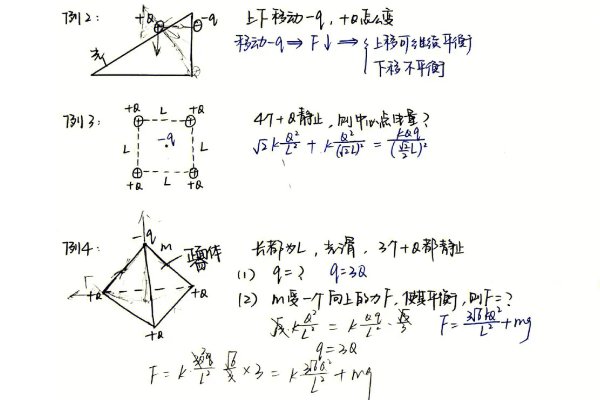 例2: +Q -q 上下移动-q, +Q怎么变
光 移动-q ⇒ F↓ ⇒ { 上移可继续平衡
下移不平衡
例3: +Q L +Q 4个+Q静止, 则中心点电量?
L -q L √2k Q²/L² + k Q²/(√2L)² = kQq/(√2/2 L)²
+Q L +Q
例4: -q m 正四面体 长都为L, 光滑, 3个+Q都静止
(1) q=? q=3Q
+Q +Q (2) m受一个向上的力F, 使其平衡, 则F=?
+Q √3 k Q²/L² = k Qq/L² · √3/3 F = 3√6kQ²/L² + mg
q=3Q
F = k L² √6 ×3 = k 3√6Q²/L² + mg